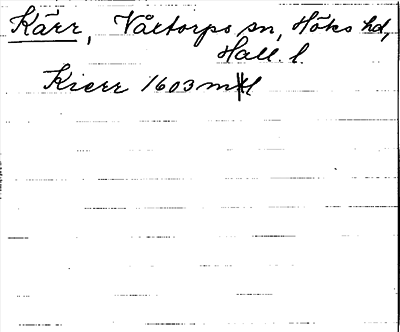 Kärr, Vårtorps sn, Höks hd,
Hall. l.
Kierr 1603 mtl